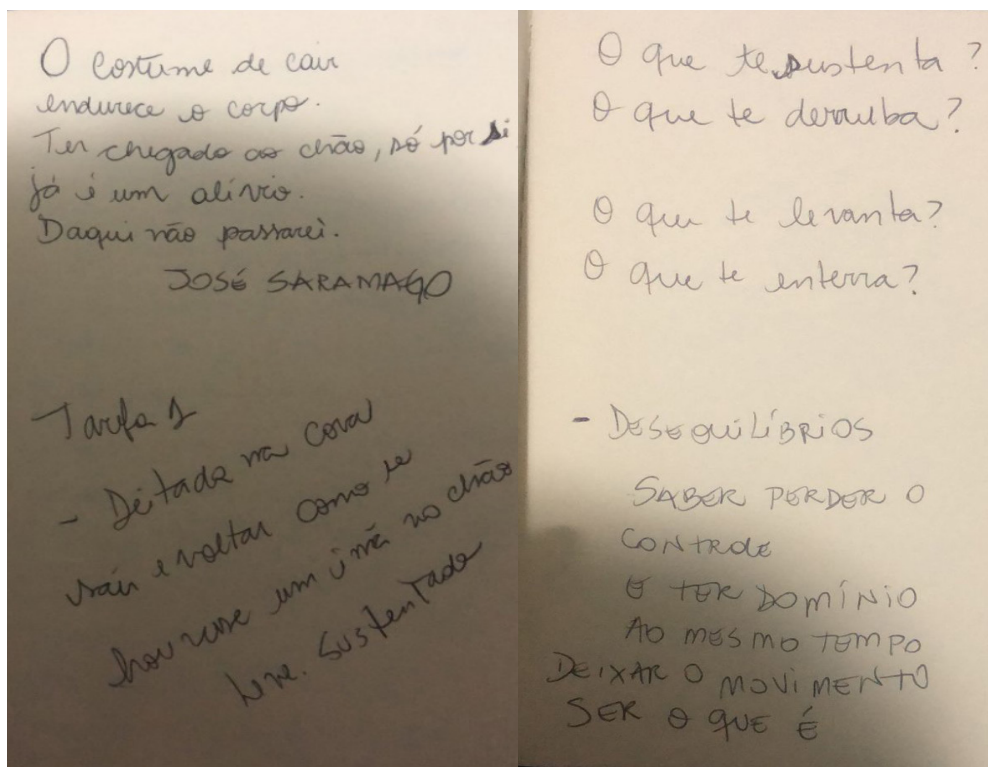 O costume de cair
endurece o corpo.
Ter chegado ao chão, só por si
já é um alívio.
Daqui não passarei.
JOSÉ SARAMAGO
Tarefa 1
- Deitada na cova
sair e voltar como se
houvesse um imã no chão
leve. sustentado
O que te sustenta?
O que te derruba?
O que te levanta?
O que te enterra?
- DESEQUILÍBRIOS
SABER PERDER O
CONTROLE
E TER DOMÍNIO
AO MESMO TEMPO
DEIXAR O MOVIMENTO
SER O QUE É